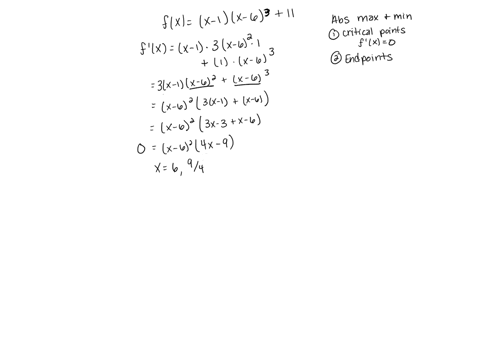 f(x) = (x-1)(x-6)³ + 11
f'(x) = (x-1) · 3(x-6)² · 1
+ (1) · (x-6)³
= 3(x-1)(x-6)² + (x-6)³
= (x-6)² (3(x-1) + (x-6))
= (x-6)² (3x-3 + x-6)
0 = (x-6)² (4x-9)
x = 6, 9/4
Abs max + min
① Critical points
f'(x) = 0
② Endpoints